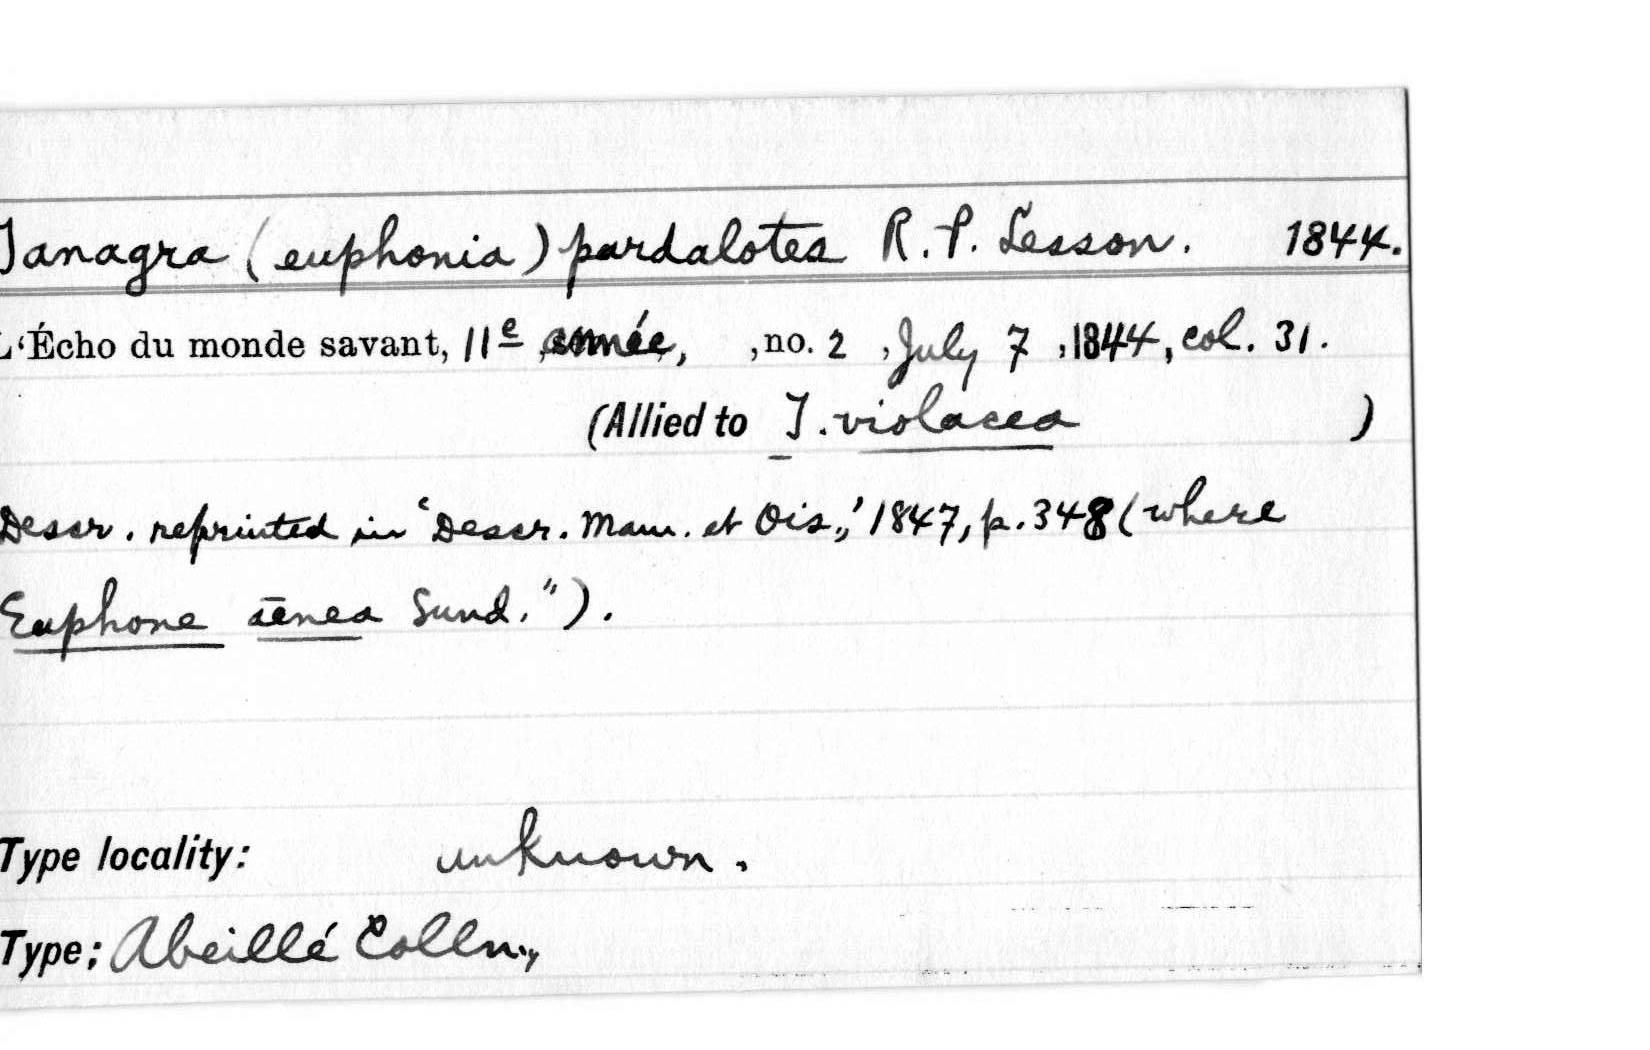 Tanagra (euphonia) pardalotes R. P. Lesson. 1844.
L'Écho du monde savant, 11e année, , no. 2 , July 7 , 1844, col. 31.
(Allied to T. violacea )
Descr. reprinted in 'Descr. Mam. et Ois.,' 1847, p. 348 (where
Euphone aenea Sund.").
Type locality: unknown.
Type: Abeillé Colln.,